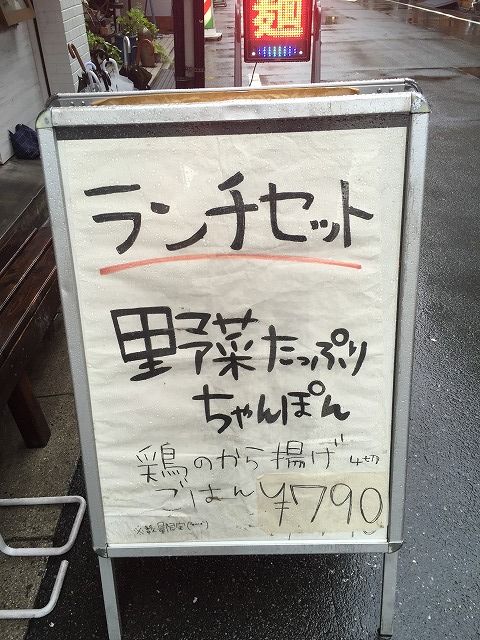 麺
ランチセット
野菜たっぷり
ちゃんぽん
鶏のから揚げ 4切
ごはん ¥790
※数量限定